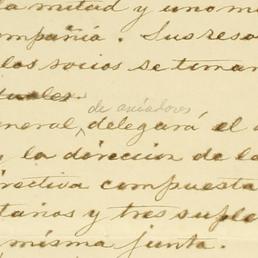 la mitad y uno m
compañía. Sus reso
los socios se toma
tuales.
de aviadores
eneral, delegará el
y la direccion de l
irectiva compuesta
tarios y tres suple
misma junta.